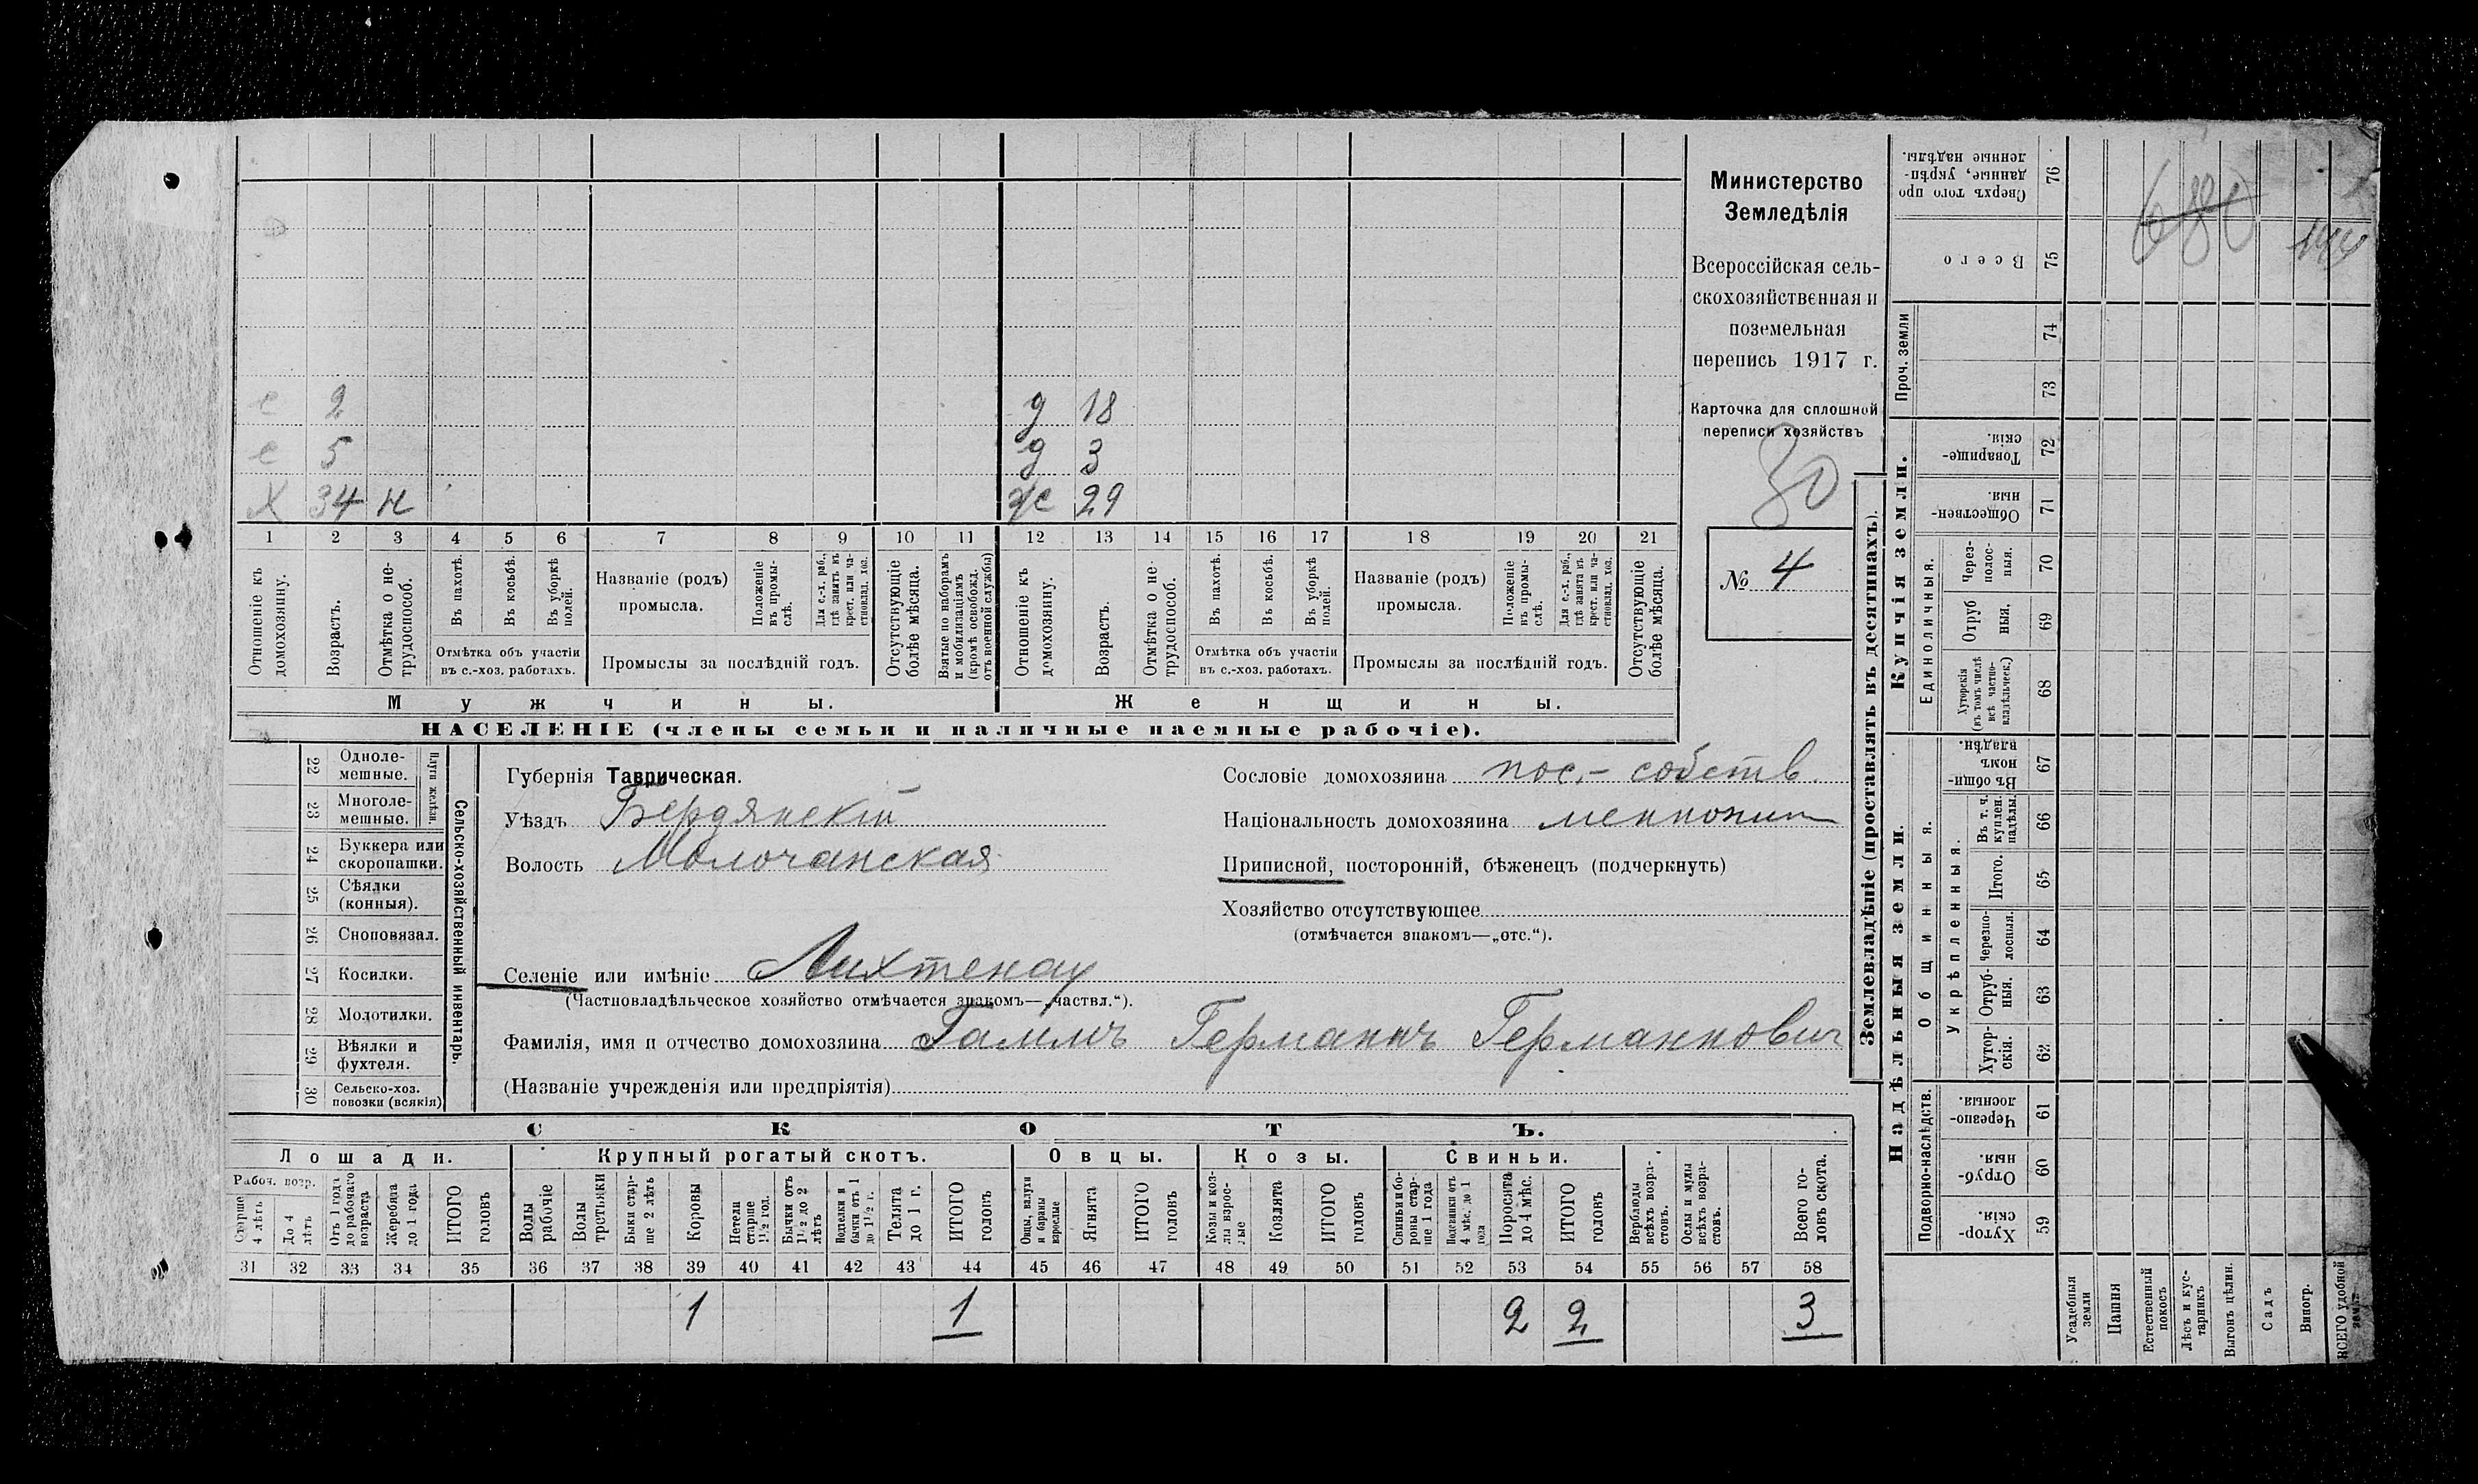 Министерство
Земледѣлія
Всероссійская сель-
скохозяйственная и
поземельная
перепись 1917 г.
Карточка для сплошной
переписи хозяйствъ
30
№ 4
с 2
с 5
Х 34 н
д 18
д 3
ж 29
1 2 3 4 5 6 7 8 9 10 11 12 13 14 15 16 17 18 19 20 21
Отношеніе къ домохозяину.
Возрастъ.
Отмѣтка о не-трудоспособ.
Въ пахотѣ.
Въ косьбѣ.
Въ уборкѣ полей.
Отмѣтка объ участіи
въ с.-хоз. работахъ.
Названіе (родъ)
промысла.
Положеніе въ промы-слѣ.
Для с.-х. раб., гдѣ занятъ въ крест. или ча-стновлад. хоз.
Промыслы за послѣдній годъ.
Отсутствующіе болѣе мѣсяца.
Взятые по наборамъ и мобилизаціямъ (кромѣ освобожд. отъ военной службы)
Отношеніе къ домохозяину.
Возрастъ.
Отмѣтка о не-трудоспособ.
Въ пахотѣ.
Въ косьбѣ.
Въ уборкѣ полей.
Отмѣтка объ участіи
въ с.-хоз. работахъ.
Названіе (родъ)
промысла.
Положеніе въ промы-слѣ.
Для с.-х. раб., гдѣ занята въ крест. или ча-стновлад. хоз.
Промыслы за послѣдній годъ.
Отсутствующіе болѣе мѣсяца.
Мужчины.
Женщины.
НАСЕЛЕНІЕ (члены семьи и наличные наемные рабочіе).
22 Одноле-мешные.
23 Многоле-мешные.
Плуги желѣзн.
24 Буккера или скоропашки.
25 Сѣялки (конныя).
26 Сноповязал.
27 Косилки.
28 Молотилки.
29 Вѣялки и фухтеля.
30 Сельско-хоз. повозки (всякія)
Сельско-хозяйственный инвентарь.
Губернія Таврическая.
Уѣздъ Бердянскій
Волость Молочанская
Селеніе или имѣніе Лихтенау
(Частновладѣльческое хозяйство отмѣчается знакомъ—„частвл.“).
Фамилія, имя и отчество домохозяина Гаммъ Германъ Германнович
(Названіе учрежденія или предпріятія)
Сословіе домохозяина пос.- собств.
Національность домохозяина меннонит
Приписной, посторонній, бѣженецъ (подчеркнуть)
Хозяйство отсутствующее
(отмѣчается знакомъ—„отс.“).
СКОТЪ.
Лошади.
Крупный рогатый скотъ.
Овцы.
Козы.
Свиньи.
Рабоч. возр.
Старше 4 лѣтъ
До 4 лѣтъ
Отъ 1 года до рабочаго возраста
Жеребята до 1 года
ИТОГО головъ
Волы рабочіе
Волы третьяки
Быки стар-ше 2 лѣтъ
Коровы
Нетели старше 1½ год.
Бычки отъ 1½ до 2 лѣтъ
Подтелки и бычки отъ 1 до 1½ г.
Телята до 1 г.
ИТОГО головъ
Овцы, валухи и бараны взрослые
Ягнята
ИТОГО головъ
Козы и коз-лы взрос-лые
Козлята
ИТОГО головъ
Свиньи и бо-ровы стар-ше 1 года
Подсвинки отъ 4 мѣс. до 1 года
Поросята до 4 мѣс.
ИТОГО головъ
Верблюды всѣхъ возра-стовъ.
Ослы и мулы всѣхъ возра-стовъ.
Всего го-ловъ скота.
31 32 33 34 35 36 37 38 39 40 41 42 43 44 45 46 47 48 49 50 51 52 53 54 55 56 57 58
1 1 2 2 3
Землевладѣніе (проставлять въ десятинахъ).
Надѣльныя земли.
Купчія земли.
Проч. земли
Подворно-наслѣдств.
Общинныя.
Укрѣпленныя.
Единоличныя.
Сверхъ того про-данные, укрѣп-ленные надѣлы. 76
Всего 75
74
73
Товарище-скія. 72
Обществен-ныя. 71
Через-полос-ныя. 70
Отруб-ныя, 69
Хуторскія (въ томъ числѣ всѣ частно-владѣльческ.) 68
Въ общи-номъ владѣн. 67
Въ т. ч. куплен. надѣлы. 66
Итого. 65
Черезпо-лосныя. 64
Отруб-ныя. 63
Хутор-скія. 62
Черезпо-лосныя. 61
Отруб-ныя. 60
Хутор-скія. 59
Усадебныя земли
Пашня
Естественный покосъ
Лѣсъ и кус-тарникъ
Выгонъ цѣлин.
Садъ
Виногр.
ВСЕГО удобной земли
680